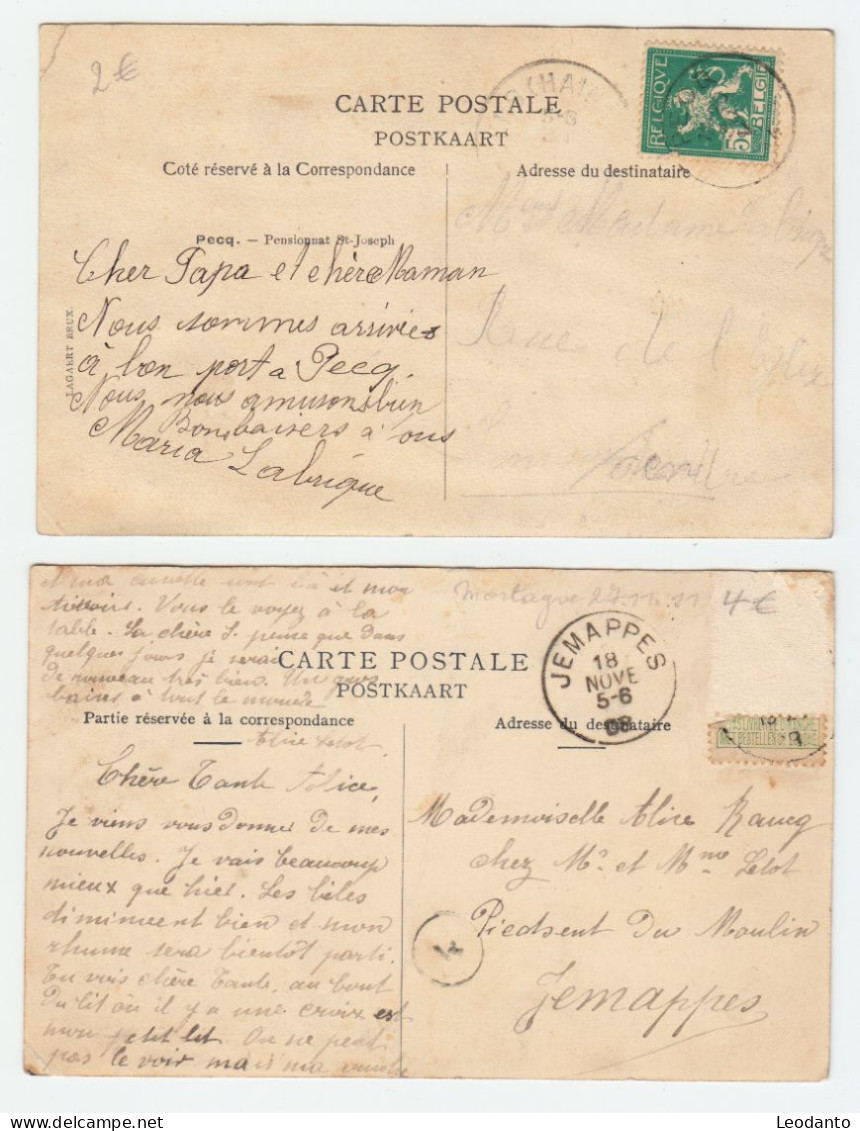 2 €
CARTE POSTALE
POSTKAART
BELGIQUE
5
BELGIE
Coté réservé à la Correspondance
Adresse du destinataire
Pecq. — Pensionnat St-Joseph
LAGAERT BRUX.
Cher Papa et chère Maman
Nous sommes arrivées
à bon port a Pecq.
Nous nous amusons bien
Bons baisers à ous
Maria Labrique
et Madame
Rue de l'
et mon
. Vous le voyez à la
table. La chère S. pense que dans
quelques jours je serai
de nouveau très bien. Un gros
à tout le monde
Alice Letot.
Mortagne 27.11.11
4 €
CARTE POSTALE
POSTKAART
JEMAPPES
18
NOVE
5-6
08
Partie réservée à la correspondance
Adresse du destinataire
Chère Tante Alice,
Je viens vous donner de mes
nouvelles. Je vais beaucoup
mieux que hier. Les
diminuent bien et mon
rhume sera bientôt parti.
Tu vois chère Tante, au bout
du lit où il y a une croix est
mon petit lit. On ne peut
pas le voir mais ma
Mademoiselle Alice Raucq
chez Mr et Mme Letot
Piedsent Du Moulin
Jemappes
Leodanto